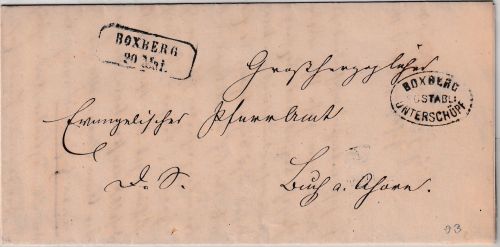 BOXBERG
20 Mai.
BOXBERG
POSTABL.
UNTERSCHÜPF
Großherzogliches
Evangelisches Pfarramt
D. S.
Buch a. Ahorn.
93